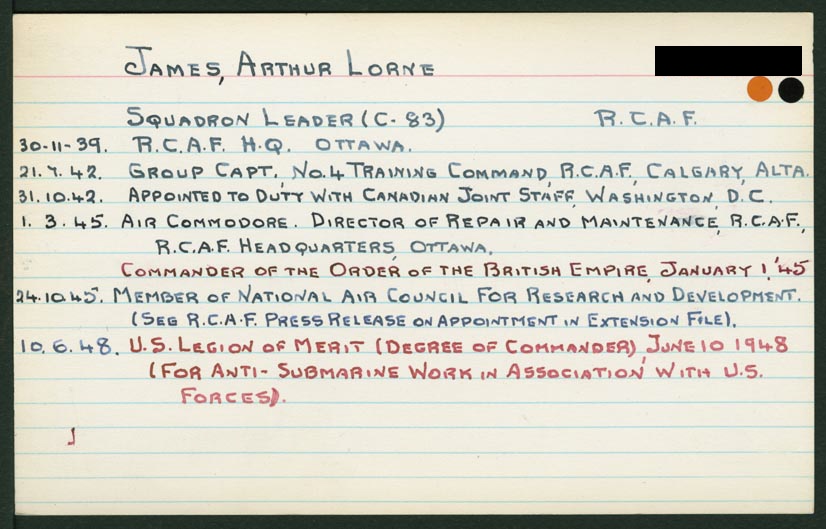 JAMES, ARTHUR LORNE
SQUADRON LEADER (C-83) R.C.A.F.
30-11-39. R.C.A.F. H.Q. OTTAWA.
21.7.42. GROUP CAPT., NO.4 TRAINING COMMAND, R.C.A.F., CALGARY, ALTA.
31.10.42. APPOINTED TO DUTY WITH CANADIAN JOINT STAFF, WASHINGTON, D.C.
1.3.45. AIR COMMODORE. DIRECTOR OF REPAIR AND MAINTENANCE, R.C.A.F.,
R.C.A.F. HEADQUARTERS, OTTAWA.
COMMANDER OF THE ORDER OF THE BRITISH EMPIRE, JANUARY 1, '45
24.10.45. MEMBER OF NATIONAL AIR COUNCIL FOR RESEARCH AND DEVELOPMENT.
(SEE R.C.A.F. PRESS RELEASE ON APPOINTMENT IN EXTENSION FILE).
10.6.48. U.S. LEGION OF MERIT (DEGREE OF COMMANDER), JUNE 10 1948
(FOR ANTI-SUBMARINE WORK IN ASSOCIATION WITH U.S.
FORCES).